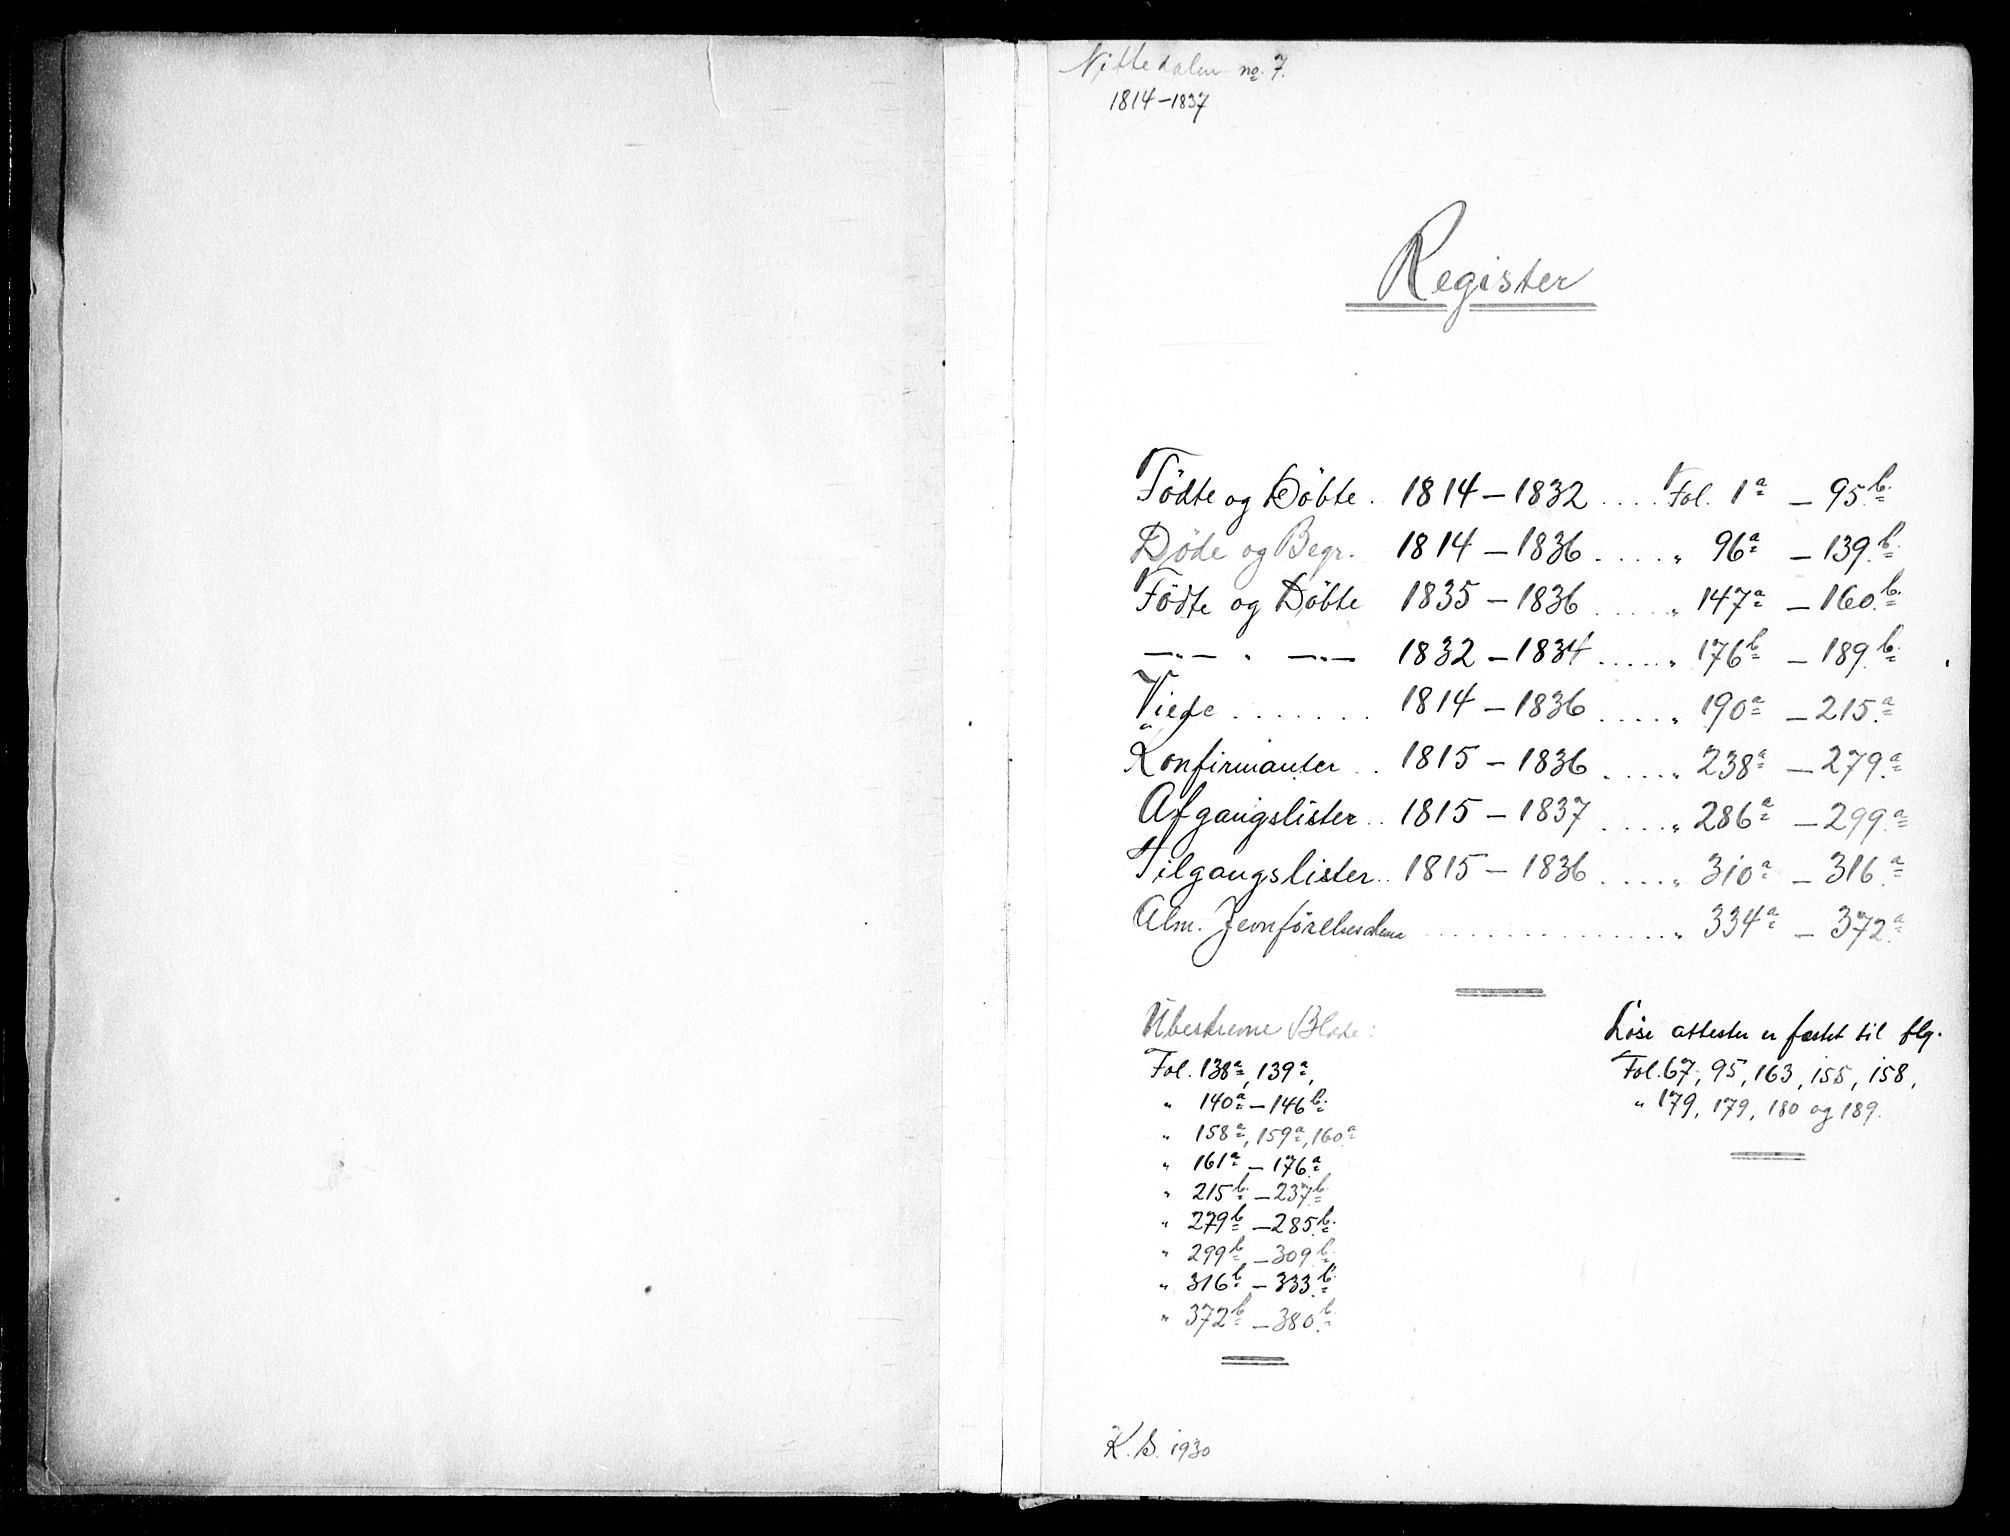 Nittedalen no. 7.
1814-1837
Register
Födte og Döbte . 1814 - 1832 .... Fol. 1a - 95b.
Döde og Begr. 1814 - 1836 .... " 96a - 139.b.
Födte og Döbte 1835 - 1836 .... " 147a - 160.b.
—"— " —"— 1832 - 1834 .... " 176b - 189.b.
Viede ....... 1814 - 1836 .... " 190a - 215.a
Konfirmanter .. 1815 - 1836 .... " 238a - 279.a
Afgangslister .. 1815 - 1837 .... " 286a - 299.a
Tilgangslister .. 1815 - 1836 .... " 310a - 316.a
Alm. Jevnförelses .............. " 334a - 372.a
Ubeskrevne Blade:
Fol. 138a, 139a,
" 140a - 146b.
" 158a, 159a, 160.a
" 161a - 176.a
" 215b. - 237b.
" 279b - 285.b.
" 299b - 309.b.
" 316b - 333.b.
" 372b - 380.b.
Löse attester er festet til flg.
Fol. 67, 95, 163, 155, 158,
" 179, 179, 180 og 189.
K. S. 1930